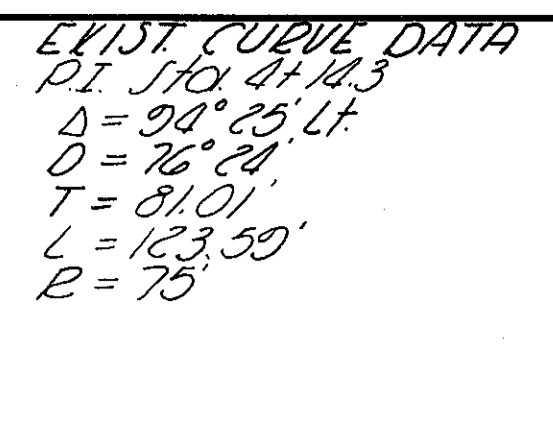 EXIST. CURVE DATA
P.I. Sta. 4+14.3
Δ = 94° 25' Lt.
D = 76° 24'
T = 81.01'
L = 123.59'
R = 75'